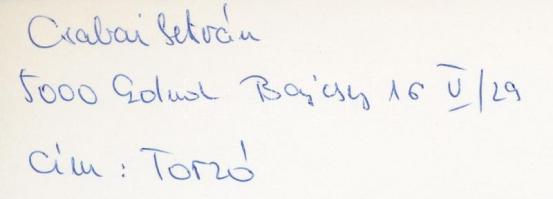 Csabai István
5000 Szolnok Bajcsy 16 V/29
Cím: Torzó